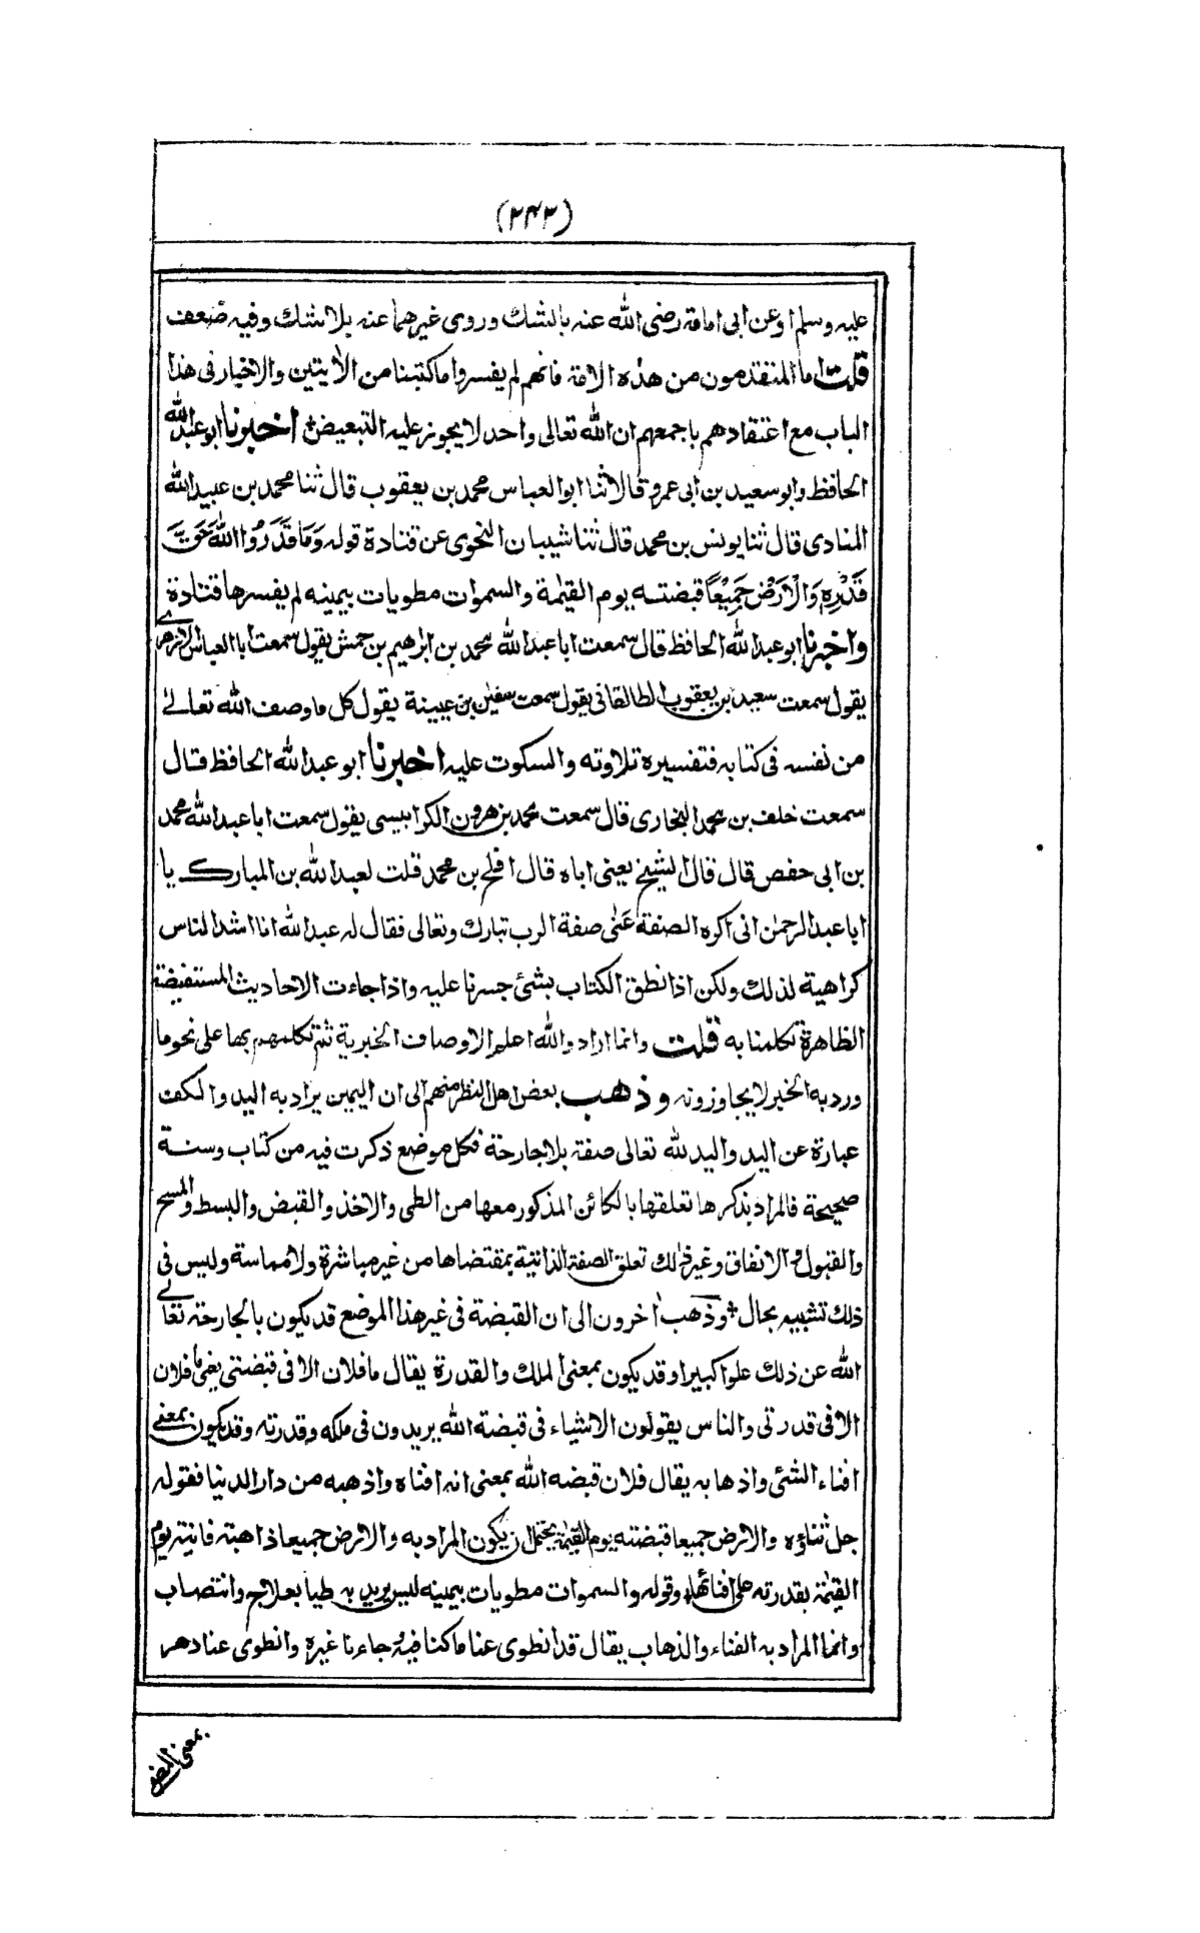 (۲۴۲)
عليه وسلم او عن ابى امامة رضى الله عنه بالشك وروى غيرهما عنه بلا شك وفيه ضعف
قلت اما المتقدمون من هذه الامة فانهم لم يفسروا ما كتبنا من الأيتين والاخبار فى هذا
الباب مع اعتقادهم باجمعهم ان الله تعالى واحد لا يجوز عليه التبعيض اخبرنا ابو عبد الله
الحافظ وابو سعيد بن ابى عمرو قالا ثنا ابو العباس محمد بن يعقوب قال ثنا محمد بن عبيد الله
المنادى قال ثنا يونس بن محمد قال ثنا شيبان النحوى عن قتادة قوله وَمَا قَدَرُوا اللّٰهَ حَقَّ
قَدْرِهٖ وَالْاَرْضُ جَمِيْعًا قبضته يوم القيٰمة والسمٰوات مطويات بيمينه لم يفسرها قتادة
واخبرنا ابو عبد الله الحافظ قال سمعت ابا عبد الله محمد بن ابرٰهيم بن حمش يقول سمعت ابا العباس الازهرى
يقول سمعت سعيد بن يعقوب الطالقانى يقول سمعت سفيٰن بن عيينة يقول كل ما وصف الله تعالىٰ
من نفسه فى كتابه فتفسيره تلاوته والسكوت عليه اخبرنا ابو عبد الله الحافظ قال
سمعت خلف بن محمد البخارى قال سمعت محمد بن هرون الكرابيسى يقول سمعت ابا عبد الله محمد
بن ابى حفص قال قال الشيخ يعنى اباه قال افلح بن محمد قلت لعبد الله بن المبارك يا
ابا عبد الرحمٰن انى اكره الصفة عَنٰى صفة الرب تبارك وتعالى فقال له عبد الله انا اشد الناس
كراهية لذلك ولكن اذا نطق الكتاب بشئ جسرنا عليه واذا جاءت الاحاديث المستفيضة
الظاهرة تكلمنا به قلت وانما اراد والله اعلم الاوصاف الخبرية ثم تكلمهم بها على نحو ما
ورد به الخبر لا يجاوزونه وذهب بعض اهل النظر منهم الى ان اليمين يراد به اليد والكف
عبارة عن اليد واليد لله تعالى صفة بلا جارحة فكل موضع ذكرت فيه من كتاب وسنة
صحيحة فالمراد بذكرها تعلقها بالكائن المذكور معها من الطى والاخذ والقبض والبسط والمسح
والقبول والانفاق وغير ذٰلك تعلق الصفة الذاتية بمقتضاها من غير مباشرة ولا مماسة وليس فى
ذلك تشبيه بحال وذهب اٰخرون الى ان القبضة فى غير هذا الموضع قد يكون بالجارحة تعالىٰ
الله عن ذلك علوا كبيرا وقد يكون بمعنى الملك والقدرة يقال ما فلان الا فى قبضتى يعنى ما فلان
الا فى قدرتى والناس يقولون الاشياء فى قبضة الله يريدون فى ملكه وقدرته وقد يكون بمعنى
افناء الشئ واذهابه يقال فلان قبضه الله بمعنى انه افناه واذهبه من دار الدنيا فقوله
جل ثناؤه والارض جميعا قبضته يوم القيٰمة يحتمل ان يكون المراد به والارض جميعا ذاهبة فانية يوم
القيٰمة بقدرته على افنائها وقوله والسموات مطويات بيمينه ليس يريد به طيا بعلاج وانتصاب
وانما المراد به الفناء والذهاب يقال قد انطوى عنا ما كنا فيه وجاءنا غيره وانطوى عنا دهر
بمعنى المضى